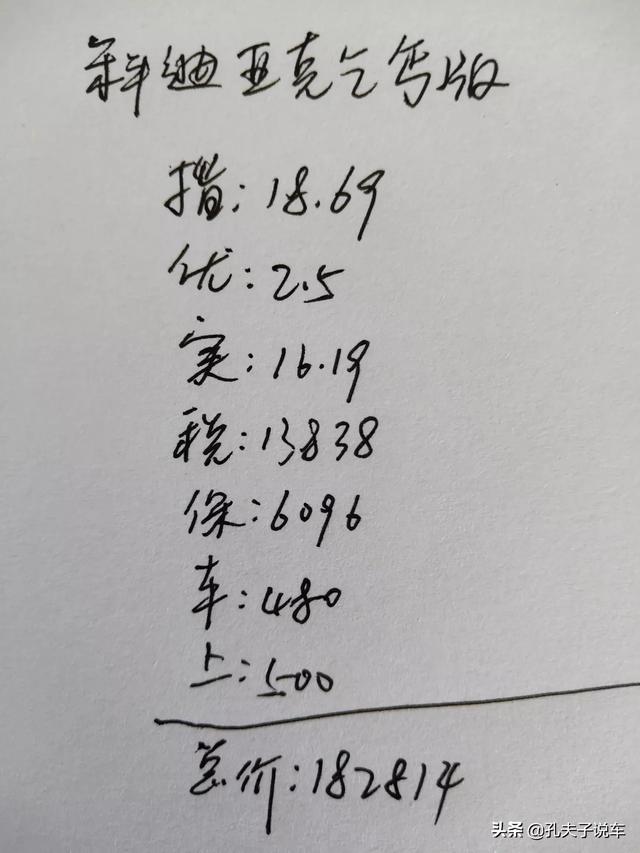 科迪亚克乞丐版
指:18.69
优:2.5
实:16.19
税:13838
保:6096
车:480
上:500
总价:182814
头条 @孔夫子说车